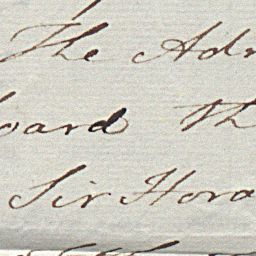 The Adm
board Th
Sir Hora